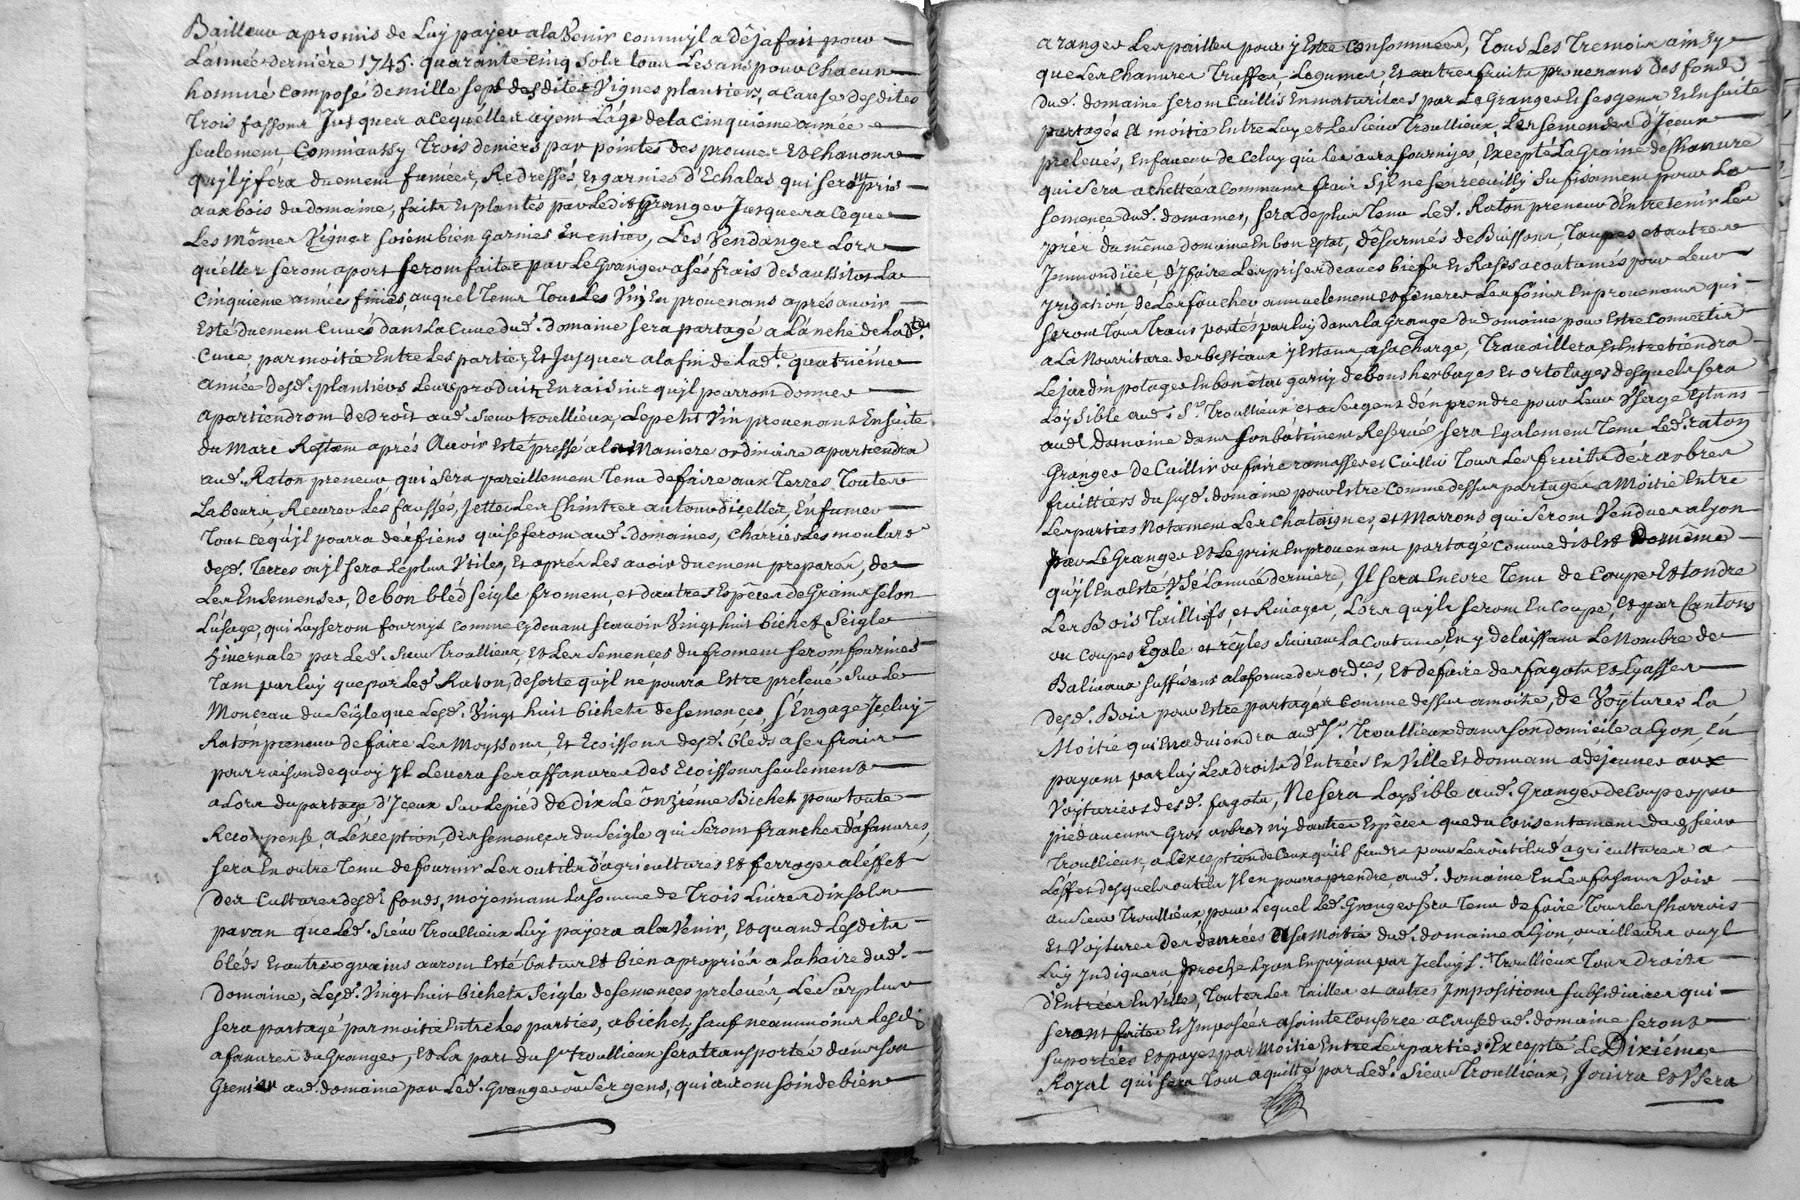 Bailleur a promis de Luy payer a la Venir comm'jl a dêja fait pour
L'année derniére 1745. quarante cinq sols tous Les ans pour chacun
hommé composé de mille seps desdites Vignes plantier, a cause desdites
Trois fassons Jusques a ce qu'elles ayent L'age de la cinquiéme année
seulement, Comm'aussy Trois deniers par pointes des prouves et chavons
qu'jl y fera duement fumées, Redressés, et garnies d'Echalas qui seront pris
aux bois du domaine, faits et plantés par Ledit Granger Jusques a ce que
Les mêmes Vignes soient bien garnies En entier, Les Vendanges Lors
qu'elles seront a port seront faites par Le Granger a sés frais des aussitot La
Cinquieme année finies, auquel Tems Tous Les Vin En provenans aprés avoir
Esté duement Cuvés dans La Cuve dud. domaine sera partagé a L'anche de Ladte.
Cuve, par moitié Entre Les parties, Et Jusques a la fin de Ladte. quatriéme
année desd. plantiers Leurs produits En raisins qu'jl pourront donner
apartiendront de droit aud. sieur troullieux, Le petit Vin provenant Ensuite
du Marc Restant aprés Avoir Esté pressé a la Maniere ordinaire apartiendra
aud. Raton preneur, qui sera pareillement Tenu de faire aux Terres Toutes
Labeurs, Recurer Les faussés, jetter Les Chintres autour d'icelles, En fumer
Tout ce qu'jl pourra dés fiens qui se feront aud. domaines, charrier Les moulars
desd. Terres ou jl sera Le plus Vtiles, Et aprés Les avoir duement preparés, de
Les Ensemenser, De bon bléd seigle froment, et d'autres Espêces de Grains selon
L'usage, qui Luy seront fournis comme cy devant scavoir Vingt huit bichets Seigle
hivernale par Led. Sieur Troullieux, et Les semences du froment seront fournies
Tant par luy que par Led. Raton, de sorte qu'jl ne pourra Estre prelevé sur Le
Monceau du seigle que Lesd. Vingt huit bichets de semences, S'Engage Jceluy
Raton preneur de faire Les Moyssons Et Ecoissons desd. bléds a ses frais
pour raison de quoy Jl Levera ses affanures des Ecoissons seulement
a Lors du partage d'Jceux sur Le piéd de Dix Le Onziéme Bichet pour toute
Recompense, a L'exception, des semences du seigle qui seront franches d'afanures,
sera En outre Tenu de fournir Les outils d'agricultures Et ferrages a l'effet
des Cultures desd. fonds, moyennant La somme de Trois Livres dix sols
par an que Led. Sieur Troullieux Luy payera a la Venir, Et quand Lesdits
bléds Et autres grains auront Esté batus Et bien apropriés a La haire dud.
Domaine, Lesd. Vingt huit bichets Seigle de semences prelevés, Le Surplus
sera partagé par moitié Entre Les parties, a bichet, sauf neanmoins Lesd.
afanures du Granger, Et La part du Sr. troullieux sera transportée dans son
Grenier aud. domaine par Led. Granger ou ses gens, qui auront soin de bien
a ranger Les pailles pour y Estre Consommées, Tous Les Tremois ainsy
que Les Chanvres Truffes Legumes Et autres fruits provenans des fonds
dud. domaine seront Cuillis En maturitées par Le Granger Et ses gens Et Ensuite
partagés Et moitié Entre Luy et Le Sieur Troullieux, Les semences d'Jceux
prelevés, En faveur de Celuy qui Les aura fournijes, Excepté La Graine de Chanvre
qui sera achettée a Communs frais s'jl ne s'en recuilly sufisament pour La
semence dud. domaines, sera de plus Tenu Led. Raton preneur d'Entretenir Les
prés du même domaine En bon Etat, désarmés de Buissons, Taupes et autres
Jmmondices, d'Y faire Les prises d'eaues biefs et Rases acoutumés pour Leur
jrigation, de Les faucher annuelement et fenerer Les foins En provenans qui
seront Tous Trans portés par luy dans La Grange du domaine pour Estre Convertir
a La Nourriture des bestiaux y Estans a sa charge, Travaillera Et Entretiendra
Le jardin potager En bon état garny de bons herbages et ortolages desquels sera
Loysible aud. Sr. Troullieux et a ses gens d'en prendre pour Leur Vsage Estans
aud. Domaine dans son bâtiment Reservé sera Egalement Tenu Led. raton
Granger de Cuillir ou faire ramasser et Cuillir Tous Les fruits des arbres
fruittiers du susd. domaine pour Estre comme dessus partagés a Moitié Entre
Les parties Notament Les chataignes, et Marrons qui seront Vendues a lyon
par Le Granger Et Le prix En provenant partagé comme dit Est De même
qu'jl En a Esté Vsé L'année derniere, Jl sera Encore Tenu de Couper Et tondre
Les Bois Taillifs, et Rivages, Lors qu'jls seront En coupe, Et par Cantons
ou coupes Egale et réglés suivant La Coutume, En y delaissant Le Nombre de
Baliveaux suffisans a la forme des ordces., Et de faire des fagots Et Lyasses
desd. Bois pour Estre partagés comme dessus a moitié, de Voytures La
Moitié qui En adviendra aud. Sr. Troullieux dans son domicile a Lyon, En
payant par luy Les droits d'Entrées En Ville Et donnant a dejeuner aux
Voyturiers desd. fagots, Ne sera Loysible aud. Granger de Couper par
pied aucuns Gros arbres ny d'autres Espêces que du Consentement du sieur
Troullieux, a L'exception de Ceux qu'jl faudra pour Les outils d'agricultures a
L'effet desquels outils Jl en pourra prendre, aud. domaine En Les faisant Voir
au sieur Troullieux, pour Lequel Led. Granger sera Tenu de faire Tous les Charrois
Et Voytures des danrées a sa Moitié dud. domaine a Lyon, ou ailleurs ou jl
Luy Jndiquera proche Lyon En payant par Jceluy Sr. Troullieux Tous Droits
d'Entrées En Ville, Toutes Les Tailles et autres Jmpositions subsidiaires qui
seront faites Et Jmposées a sainte Consorce a Cause dud. domaine seront
suportées Et payés par Moitié Entre Les parties Excepté Le Dixiéme
Royal qui sera Tout aquitté par Led. Sieur Troullieux, Jouira Et Vsera